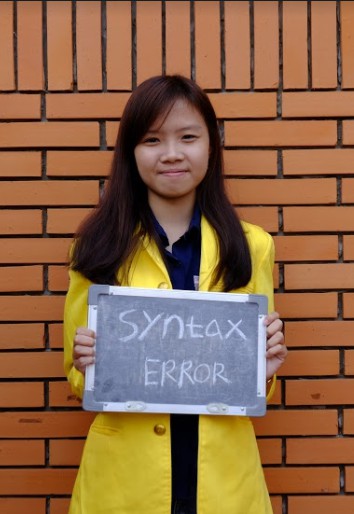 Syntax
ERROR